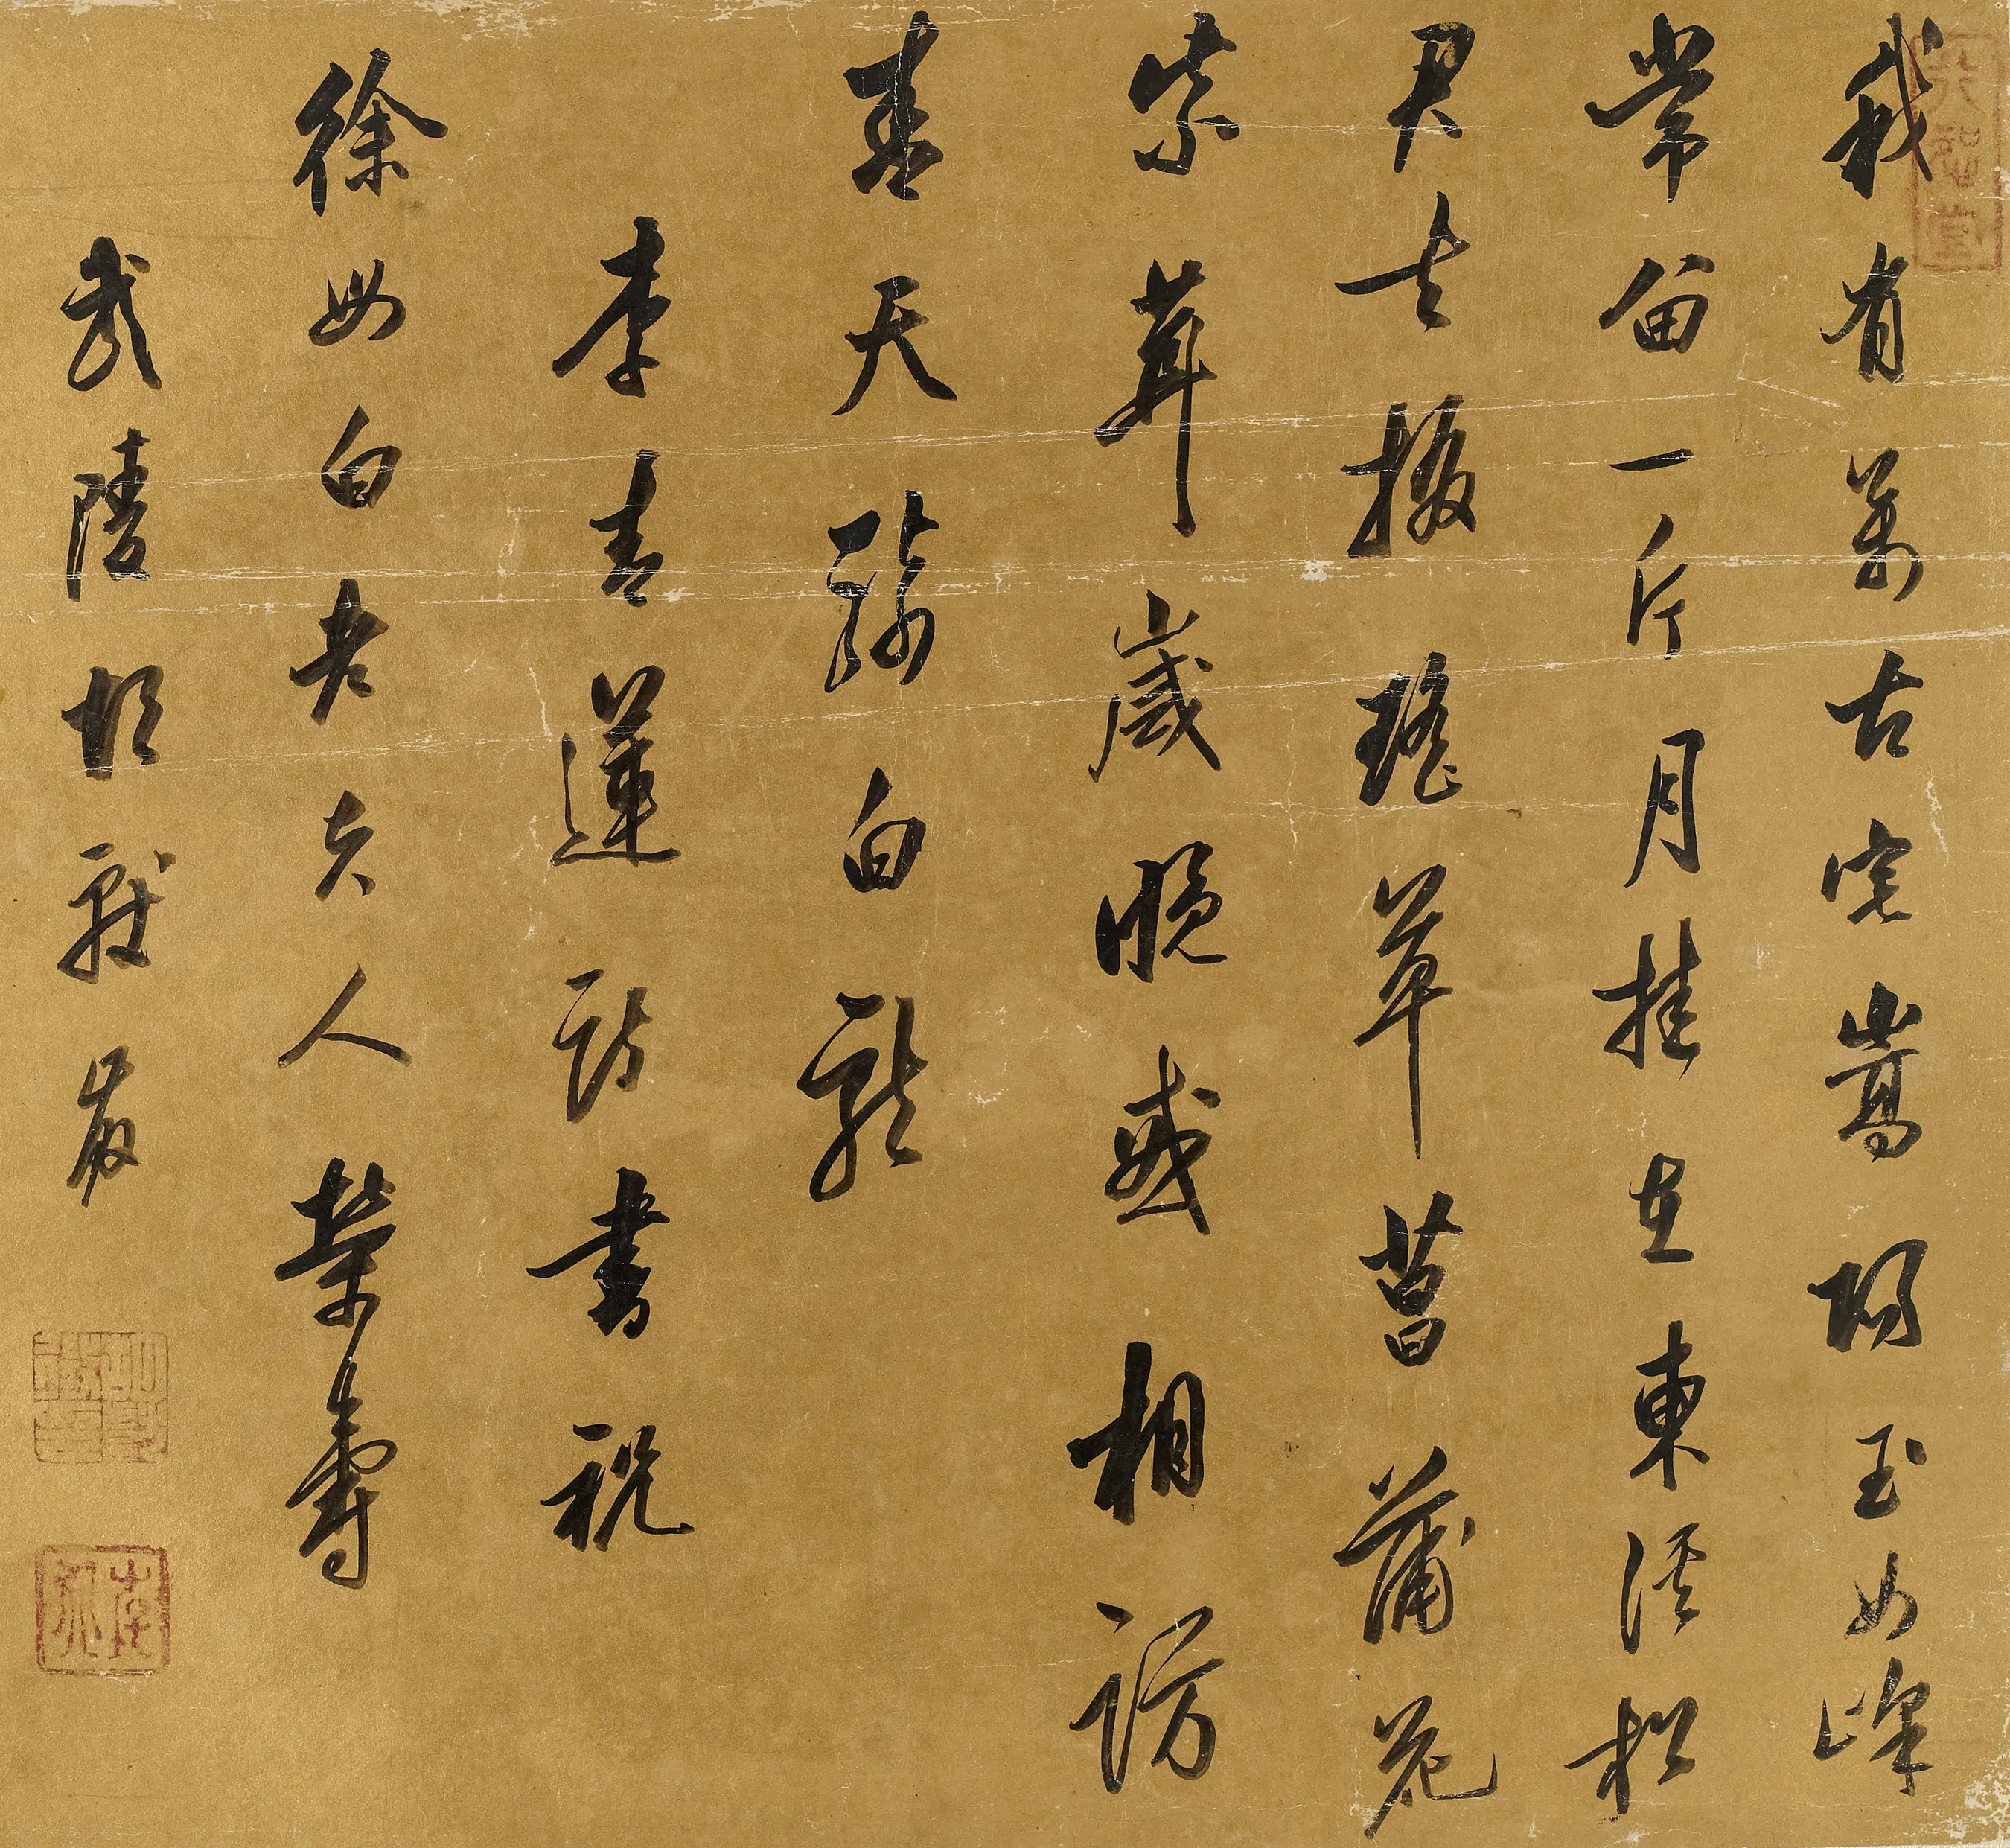 我有萬古宅嵩陽玉女峰
常留一片月挂在東溪松
君去掇瑤草菖蒲花
紫茸歲晚或相訪
青天騎白龍
李青蓮詩書祝
徐母白老夫人榮壽
武陵胡獻徵